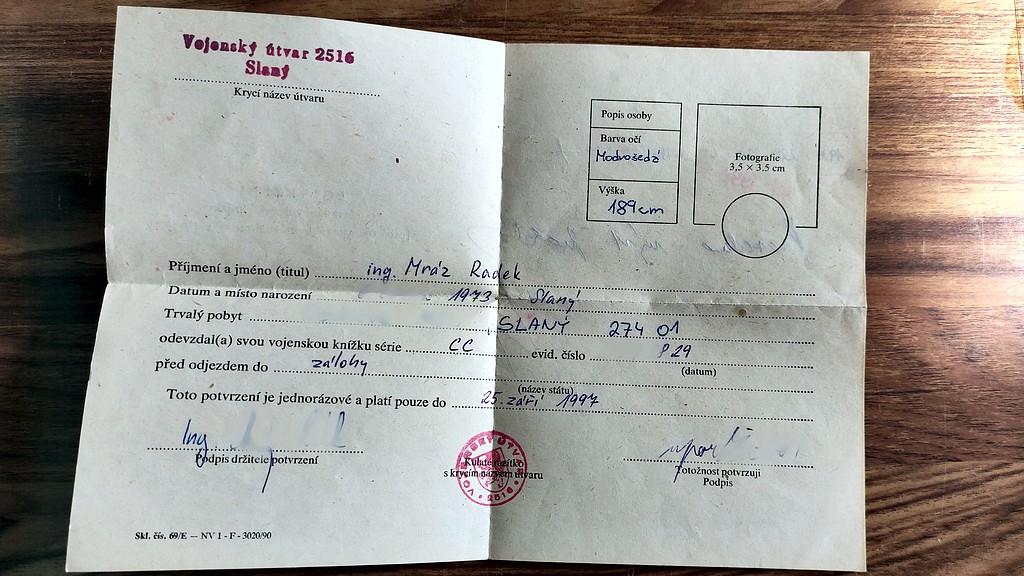 Vojenský útvar 2516
Slaný
Krycí název útvaru
Popis osoby
Barva očí
Modrošedá
Výška
189cm
Fotografie
3,5 × 3,5 cm
Příjmení a jméno (titul) ing. Mráz Radek
Datum a místo narození 1973 Slaný
Trvalý pobyt SLANÝ 274 01
odevzdal(a) svou vojenskou knížku série CC evid. číslo P29
(datum)
před odjezdem do zálohy
(název státu)
Toto potvrzení je jednorázové a platí pouze do 25. září 1997
Ing
Podpis držitele potvrzení
Kulaté razítko
s krycím názvem útvaru
VOJENSKÝ ÚTVAR
2516
Totožnost potvrzuji
Podpis
Skl. čís. 69/E — NV 1 - F - 3020/90